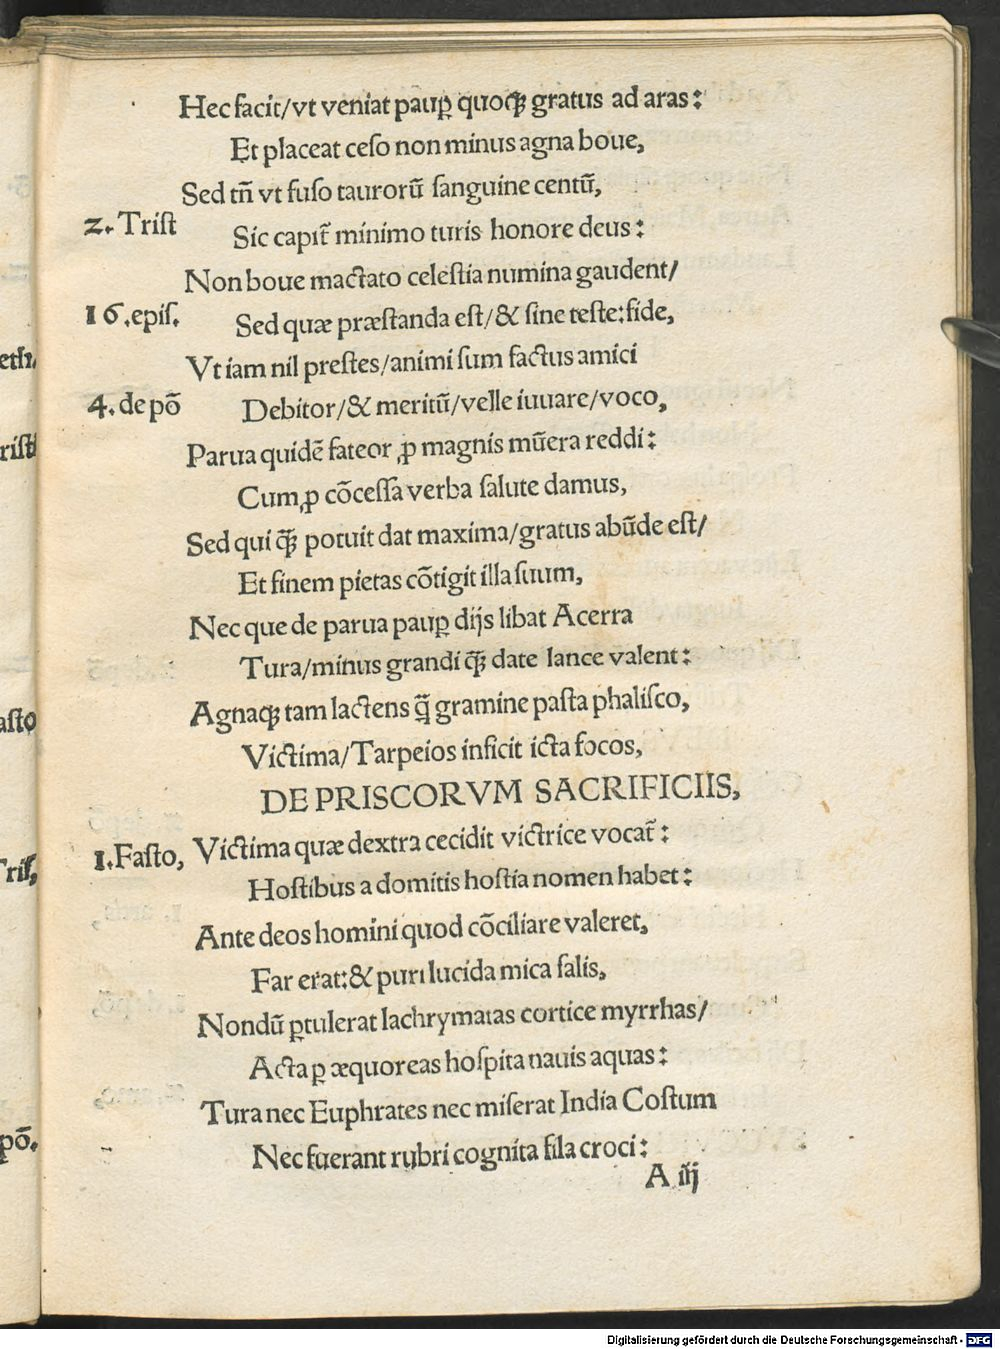 Hec facit/vt veniat paup̱ quoqꝫ gratus ad aras:
Et placeat ceso non minus agna boue,
Sed tñ vt fuso taurorū sanguine centū,
2. Trist
Sic capit᷑ minimo turis honore deus:
Non boue mactato celestia numina gaudent/
16. epis.
Sed quæ præstanda est/& sine teste: fide,
Vt iam nil prestes/animi sum factus amici
4. de põ
Debitor/& meritū/velle iuuare/voco,
Parua quidē fateor ꝓ magnis mūera reddi:
Cum ꝓ cõcessa verba salute damus,
Sed qui q̃ꝫ potuit dat maxima/gratus abūde est/
Et finem pietas cõtigit illa suum,
Nec que de parua paup̱ dijs libat Acerra
Tura/minus grandi q̃ꝫ date lance valent:
Agnaqꝫ tam lactens q̃ gramine pasta phalisco,
Victima/Tarpeios inficit icta focos,
DE PRISCORVM SACRIFICIIS,
1. Fasto,
Victima quæ dextra cecidit victrice vocat᷑:
Hostibus a domitis hostia nomen habet:
Ante deos homini quod cõciliare valeret,
Far erat: & puri lucida mica salis,
Nondū ꝑtulerat lachrymatas cortice myrrhas/
Acta ꝑ æquoreas hospita nauis aquas:
Tura nec Euphrates nec miserat India Costum
Nec fuerant rubri cognita fila croci:
A iij
Digitalisierung gefördert durch die Deutsche Forschungsgemeinschaft - DFG